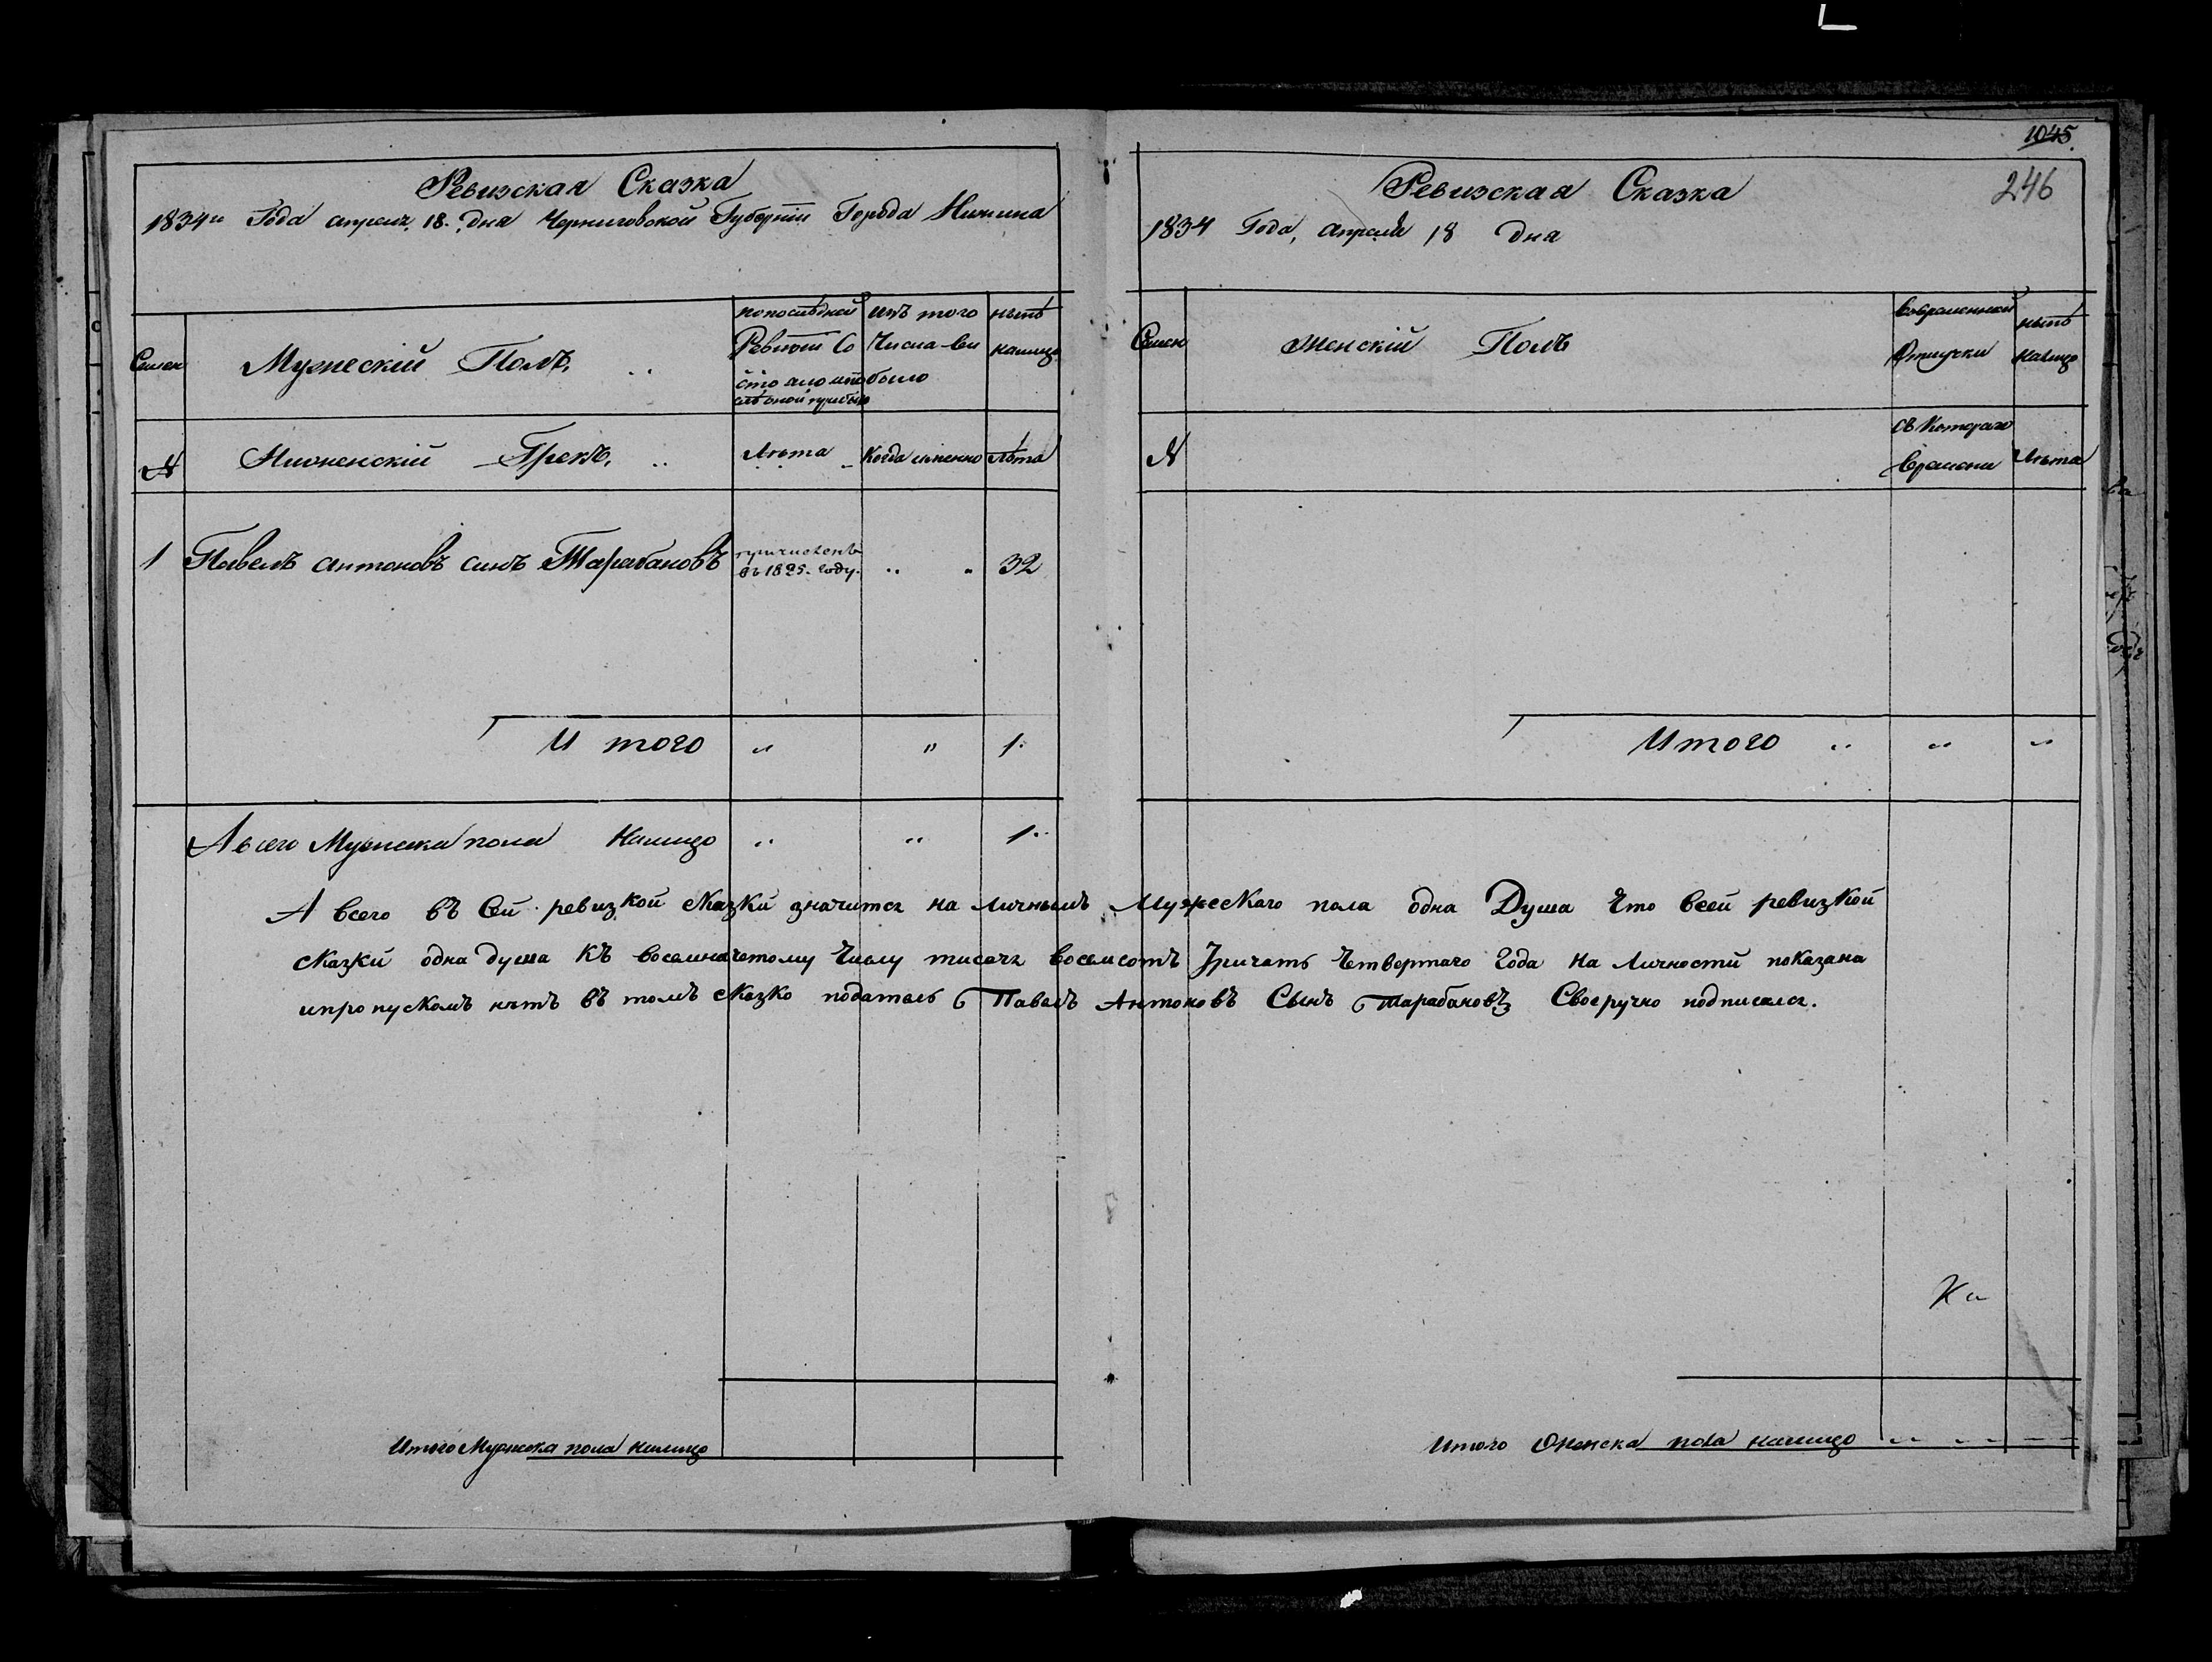 1045.
246
Ревизская Сказка
1834го Года апреля, 18. дня Черниговской Губернiи Города Нижина
Семьи
Мужескiй Полъ.
попоследней
Ревизiи Со
стояло ипо
слѣ оной прибыло
изъ того
Числа вы
было
нынѣ
налицо
№
Нѣженскiй Грекъ.
Лѣта
Когда именно
Лѣта
1
Павелъ антоновъ синъ Тарабановъ
причисленъ
въ 1825. году.
32
И того " " 1.
А всего Мужеска пола Налицо " " 1.
Ревизская Сказка
1834 Года, апреля 18 дня
Семьи
Женскiй Полъ
Вовременной
Отлучки
нынѣ
налицо
№
съ Котораго
времени
Лѣта
Итого " " "
А всего въ Сей ревизкой сказки значитса на личнымъ Мужескаго пола одна Душа Что всей ревизкой
сказки одна душа Къ восемнацетому Числу тисяча восемсотъ Тричать Четвертаго Года на Личностй показана
ипропускомъ нѣтъ въ томъ сказко податель Павелъ Антоновъ Сынъ Тарабановъ Своеручно подписался.
Итого Мужеска пола налицо
Итого Женска пола налицо